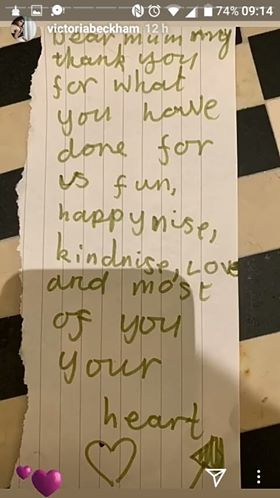 74% 09:14
victoriabeckham 12 h
Dear mummy
thank you
for what
you have
done for
us fun,
happynise,
kindnise, Love
and most
of you
your
heart